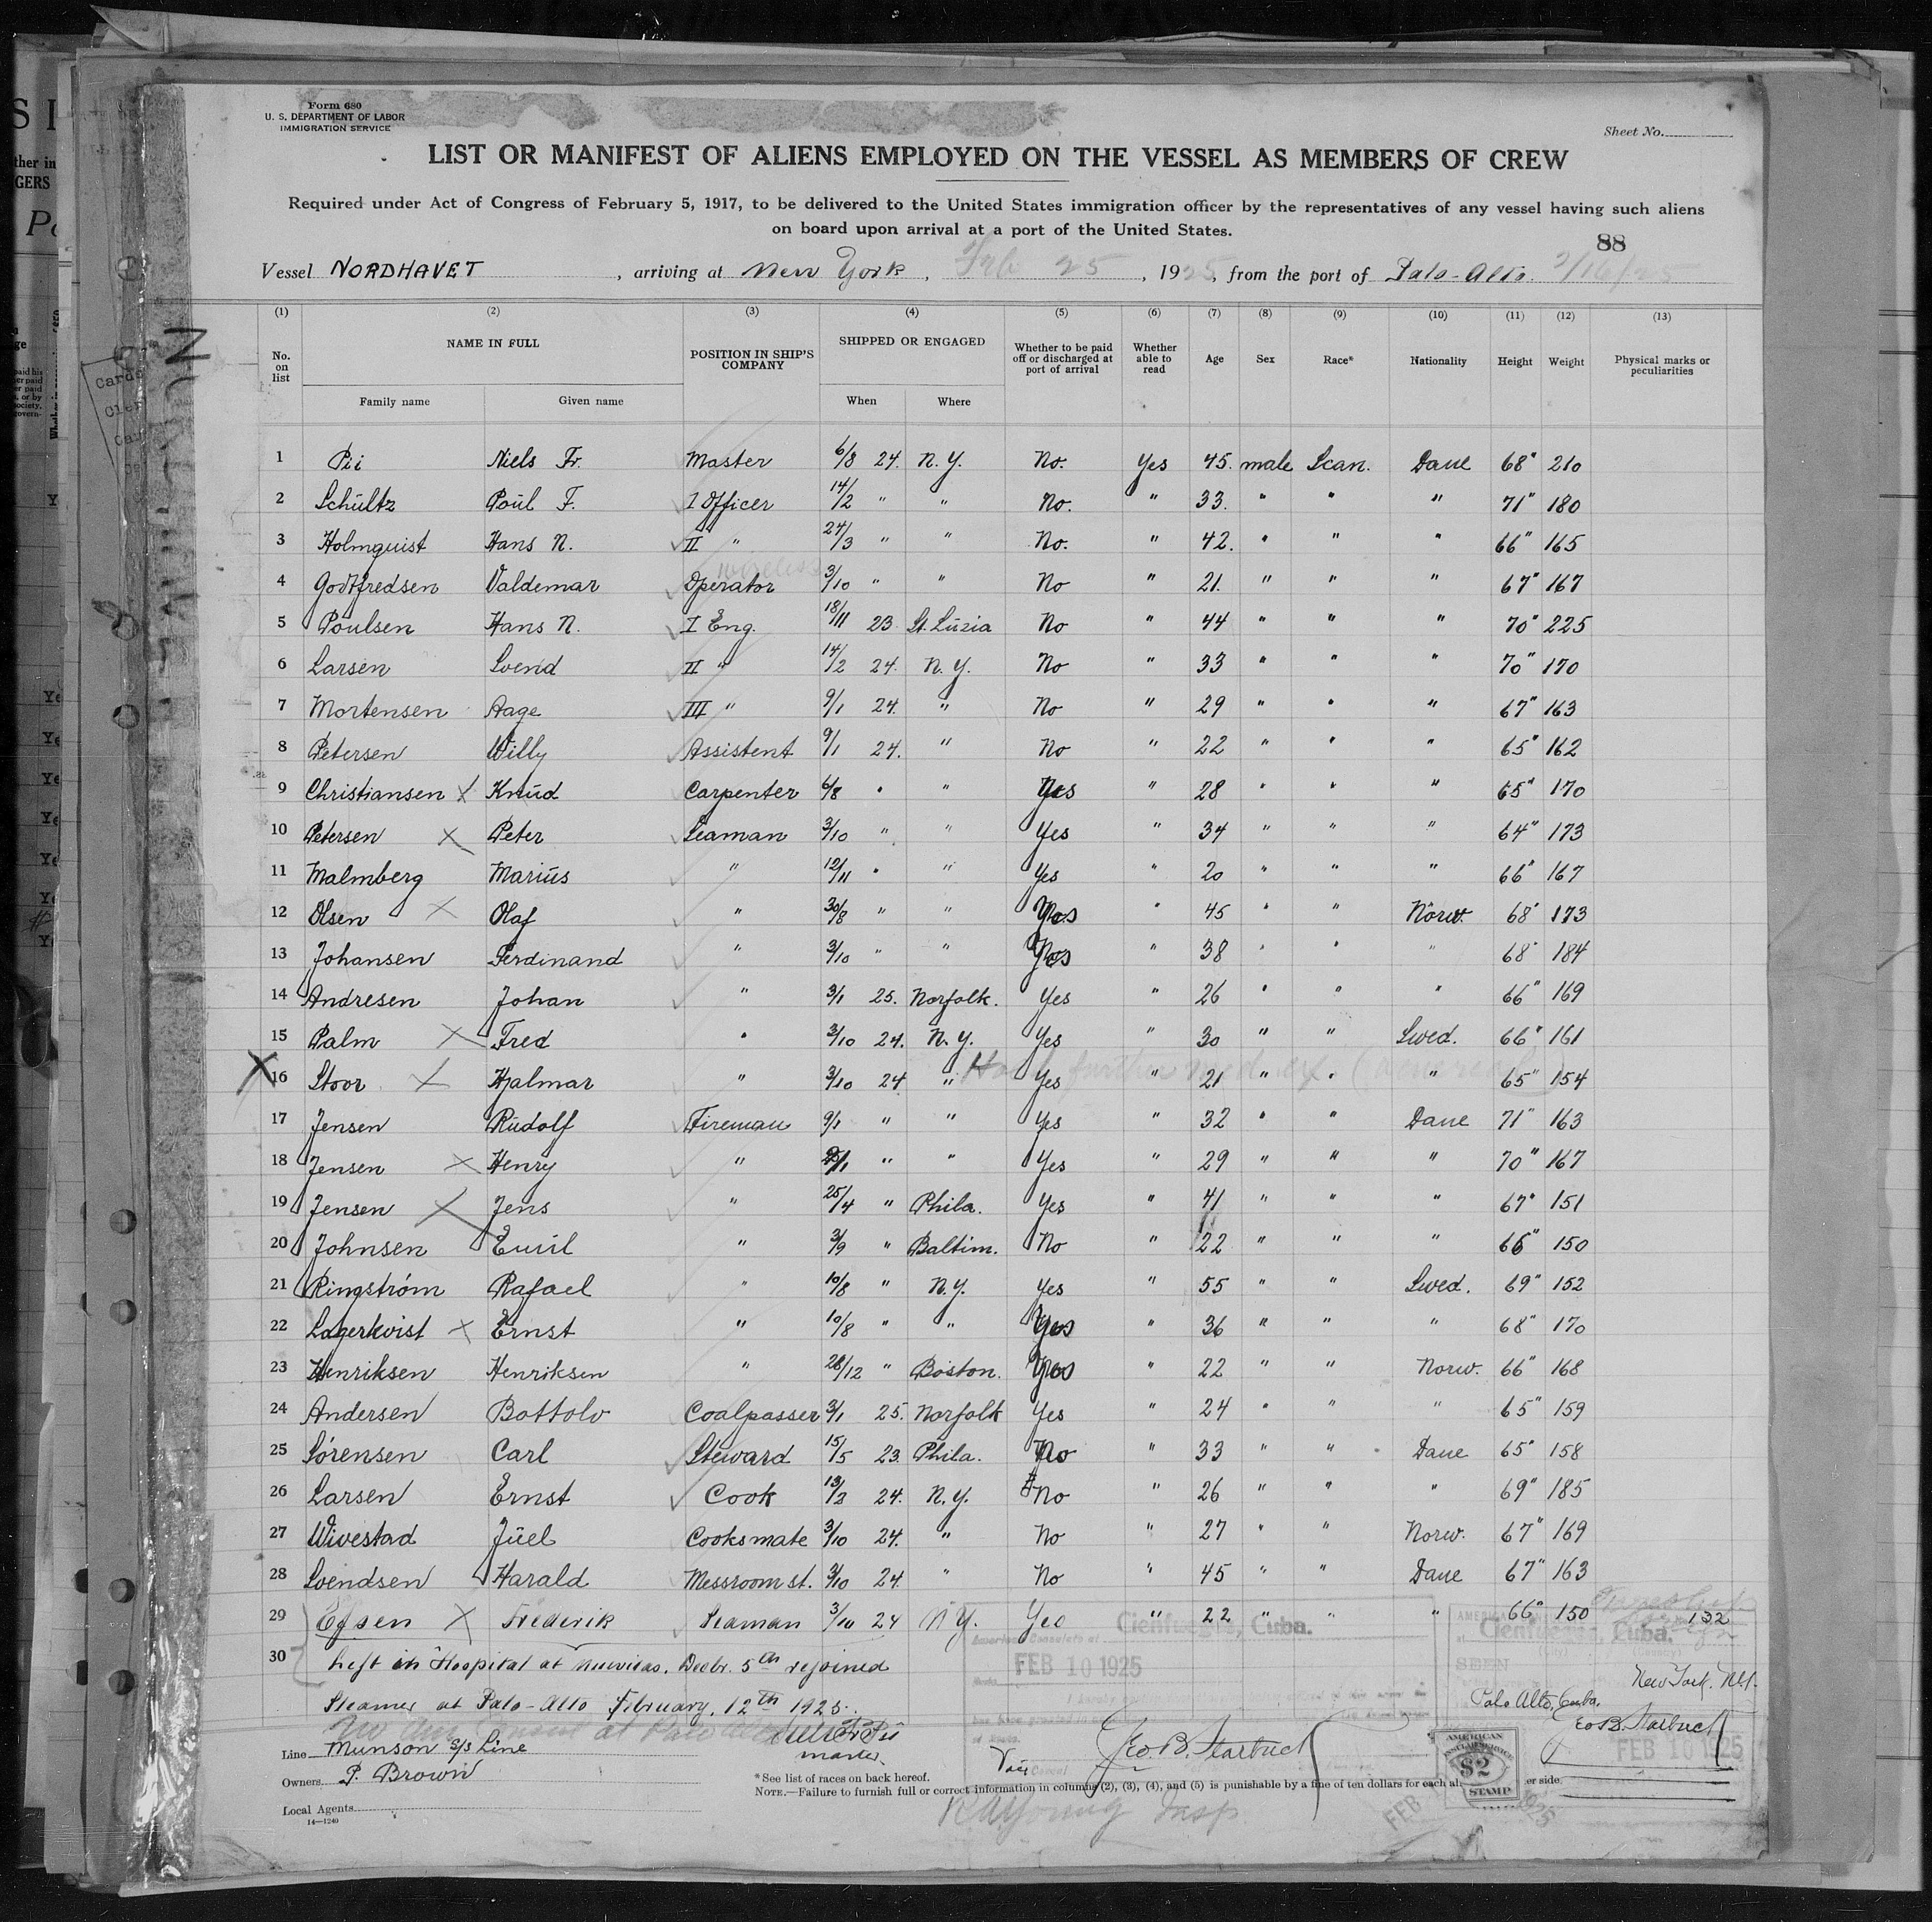 Form 680
U. S. DEPARTMENT OF LABOR
IMMIGRATION SERVICE
Sheet No.
LIST OR MANIFEST OF ALIENS EMPLOYED ON THE VESSEL AS MEMBERS OF CREW
Required under Act of Congress of February 5, 1917, to be delivered to the United States immigration officer by the representatives of any vessel having such aliens
on board upon arrival at a port of the United States.
88
Vessel NORDHAVET, arriving at New York, Feb 25, 1925, from the port of Palo-Alto. 2/16/25
(1) (2) (3) (4) (5) (6) (7) (8) (9) (10) (11) (12) (13)
No. on list NAME IN FULL POSITION IN SHIP'S COMPANY SHIPPED OR ENGAGED Whether to be paid off or discharged at port of arrival Whether able to read Age Sex Race* Nationality Height Weight Physical marks or peculiarities
Family name Given name When Where
1 Pii Niels Fr. Master 6/8 24. N.Y. No. Yes 45. male Scan. Dane 68" 210
2 Schültz Poül F. I Officer 14/2 " " No. " 33. " " " 71" 180
3 Holmquist Hans N. II " 24/3 " " No. " 42. " " " 66" 165
wireless
4 Godtfredsen Valdemar Operator 3/10 " " No " 21. " " " 67" 167
5 Poülsen Hans N. I Eng. 18/11 23 St. Lüzia No " 44 " " " 70" 225
6 Larsen Svend II " 14/2 24. N.Y. No " 33 " " " 70" 170
7 Mortensen Aage III " 9/1 24. " No " 29 " " " 67" 163
8 Petersen Willy Assistent 9/1 24. " No " 22 " " " 65" 162
9 Christiansen X Knüd Carpenter 6/8 " " Yes " 28 " " " 65" 170
10 Petersen X Peter Seaman 3/10 " " Yes " 34 " " " 64" 173
11 Malmberg Mariüs " 12/11 " " Yes " 20 " " " 66" 167
12 Olsen X Olaf " 30/8 " " Yes " 45 " " Norw. 68" 173
13 Johansen Ferdinand " 3/10 " " Yes " 38 " " " 68" 184
14 Andresen Johan " 3/1 25. Norfolk. Yes " 26 " " " 66" 169
15 Palm X Fred " 3/10 24. N.Y. Yes " 30 " " Swed. 66" 161
X 16 Stoor X Hjalmar " 3/10 24 " Yes " 21 " " " 65" 154
17 Jensen Rüdolf Fireman 9/1 " " Yes " 32 " " Dane 71" 163
18 Jensen X Henry " " " Yes " 29 " " " 70" 167
19 Jensen X Jens " 25/4 " Phila. Yes " 41 " " " 67" 151
20 Johnsen Emil " 3/9 " Baltim. No " 22 " " " 66" 150
21 Ringström Rafael " 10/8 " N.Y. Yes " 55 " " Swed. 69" 152
22 Lagerkvist X Ernst " 10/8 " " Yes " 36 " " " 68" 170
23 Henriksen Henriksen " 28/12 " Boston. Yes " 22 " " Norw. 66" 168
24 Andersen Bottolv Coalpasser 3/1 25. Norfolk Yes " 24 " " " 65" 159
25 Sörensen Carl Steward 15/5 23. Phila. No " 33 " " Dane 65" 158
26 Larsen Ernst Cook 13/2 24. N.Y. No " 26 " " " 69" 185
27 Wivestad Jüel Cooksmate 3/10 24. " No " 27 " " Norw. 67" 169
28 Svendsen Harald Messroom st. 3/10 24 " No " 45 " " Dane 67" 163
29 Efsen X Frederik Seaman 3/10 24 N.Y. Yes " 22 " " " 66" 150 132
Cienfuegos, Cuba.
Cienfuegos, Cuba.
SEEN
30 Left in Hospital at Nuevitas. Decbr. 5th rejoined
FEB 10 1925
Steamer at Palo-Alto February, 12th 1925.
New York. N.Y.
Palo Alto, Cuba.
Geo B. Starbuck
FEB 10 1925
Line Munson S/S Line
master
Geo. B. Starbuck
Owners P. Brown
AMERICAN CONSULAR SERVICE $2 STAMP
*See list of races on back hereof.
NOTE.—Failure to furnish full or correct information in columns (2), (3), (4), and (5) is punishable by a fine of ten dollars for each er side.
Local Agents
14—1240
R A Young Insp